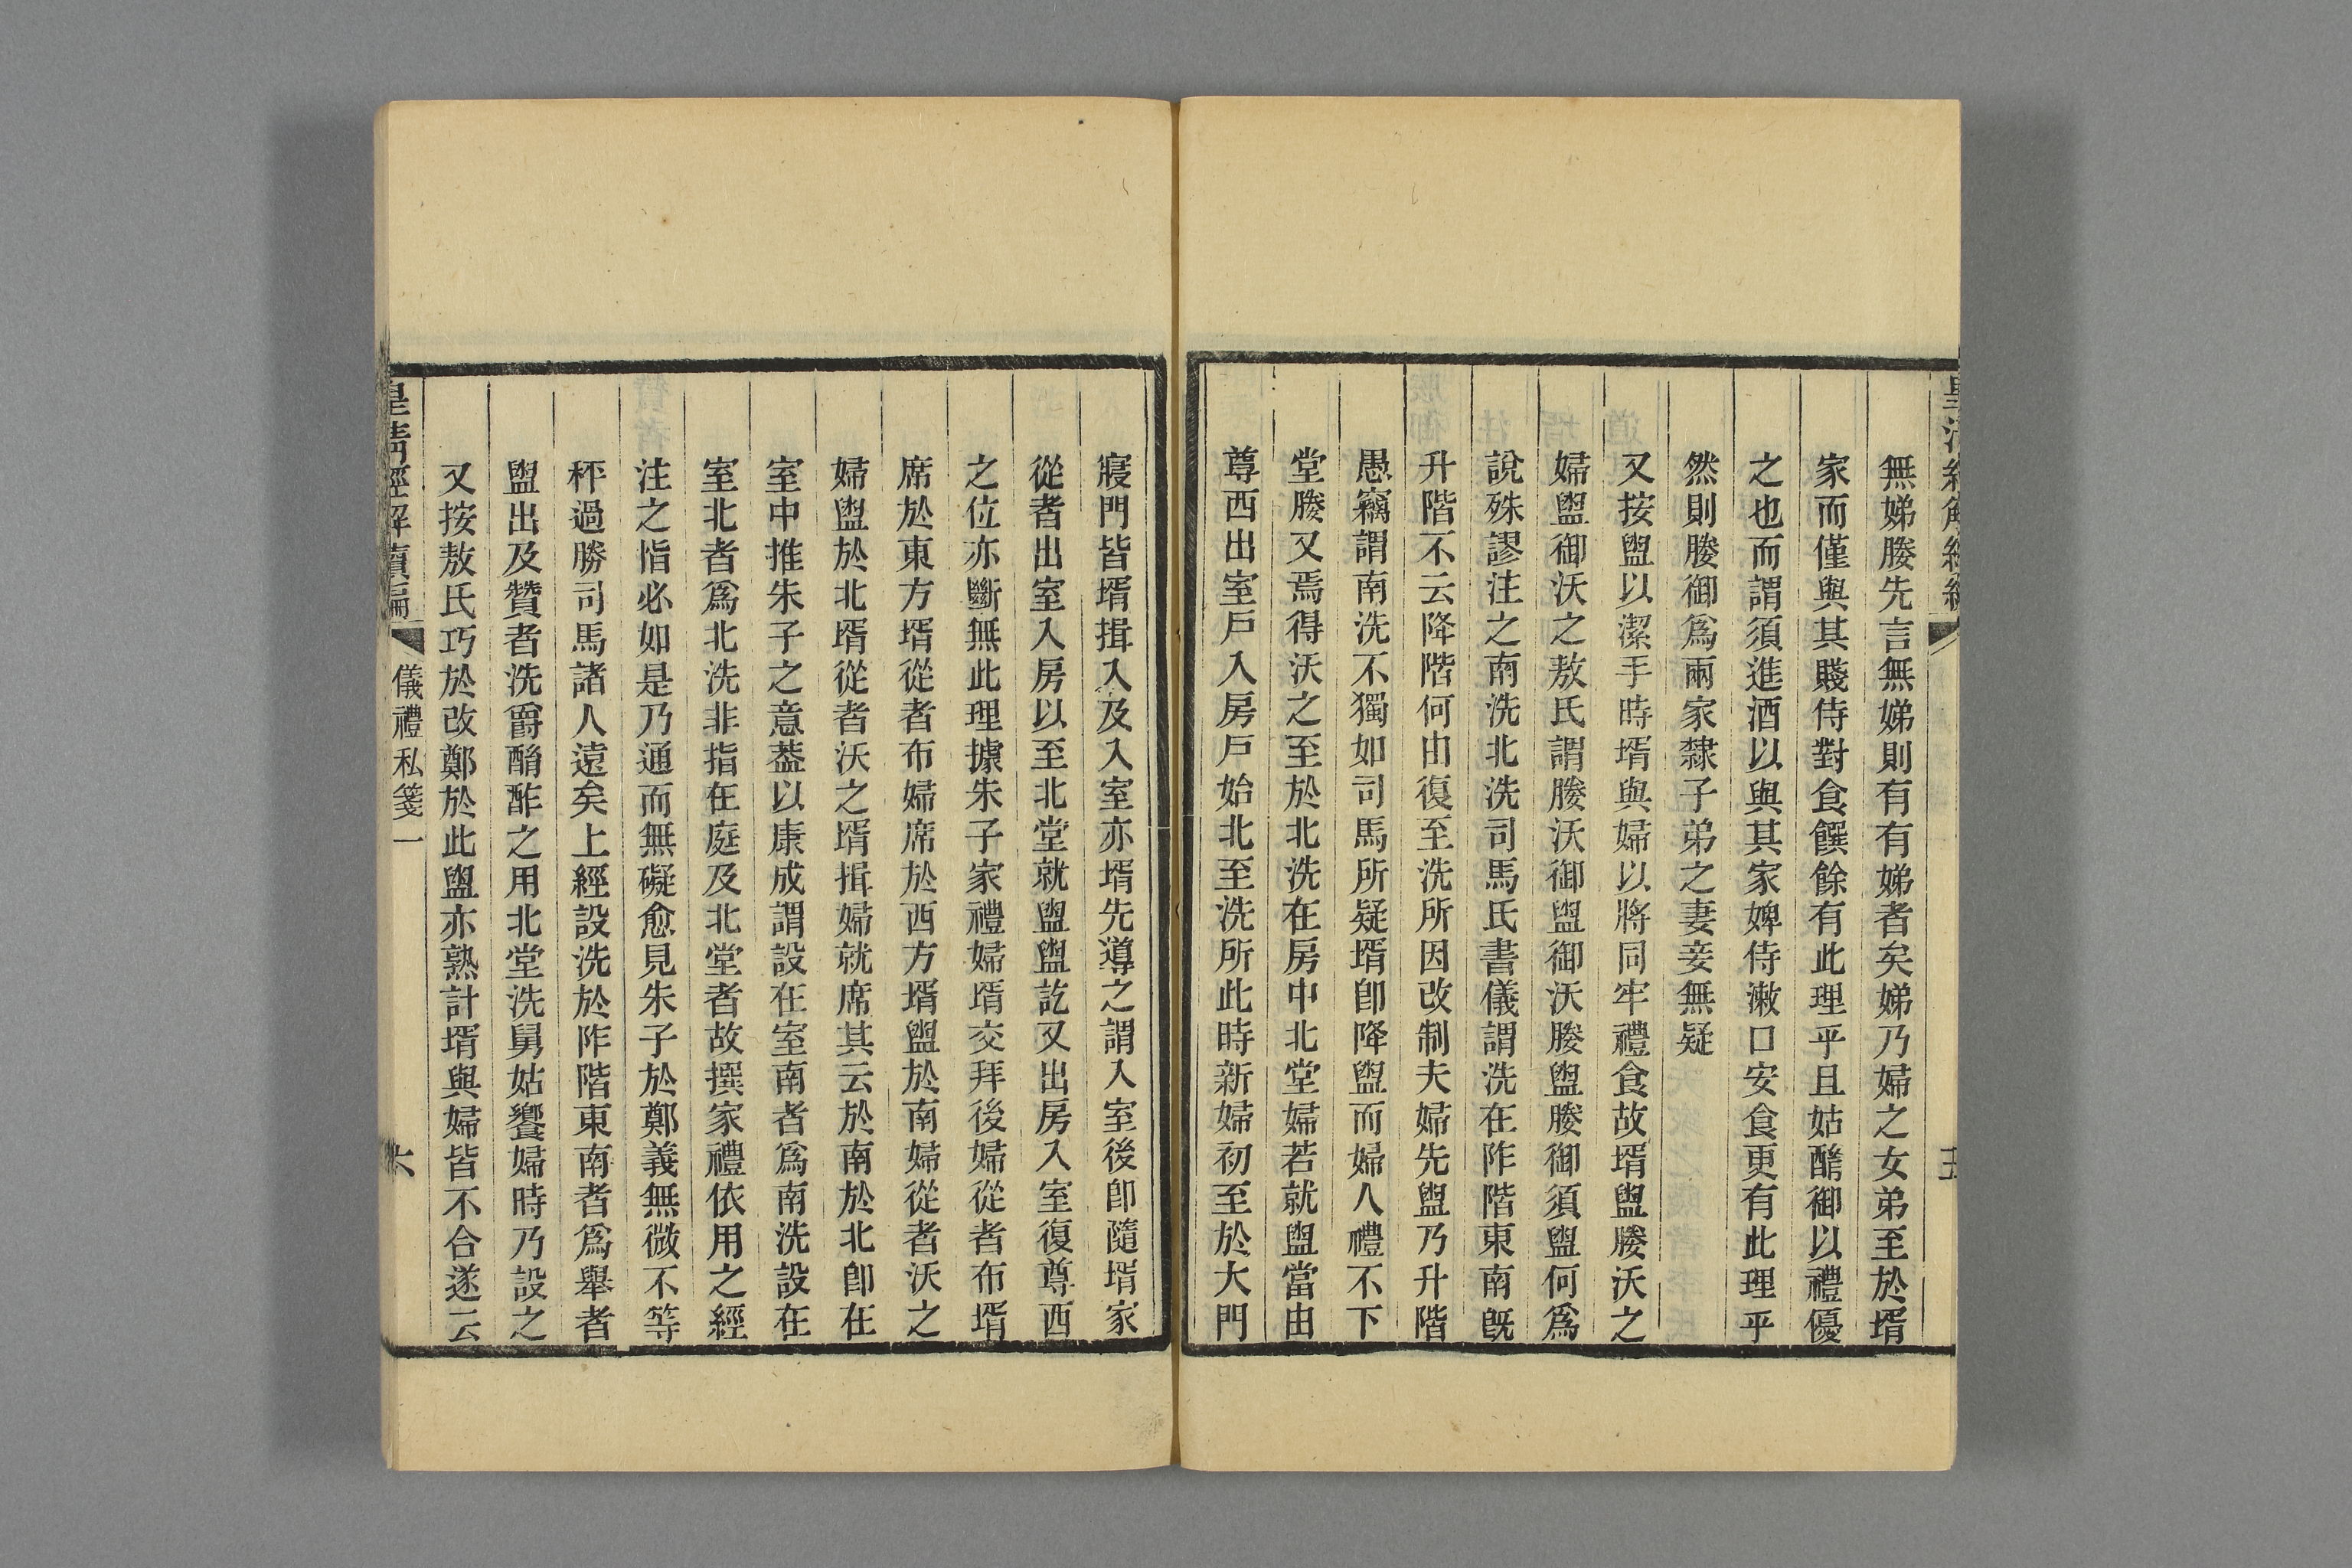 無娣媵先言無娣則有有娣者矣娣乃婦之女弟至於壻
家而僅與其賤侍對食饌餘有此理乎且姑酳御以禮優
之也而謂須進酒以與其家婢侍漱口安食更有此理乎
然則媵御爲兩家隸子弟之妻妾無疑
又按盥以潔手時壻與婦以將同牢禮食故壻盥媵沃之
婦盥御沃之敖氏謂媵沃御盥御沃媵盥媵御須盥何爲
說殊謬注之南洗北洗司馬氏書儀謂洗在阼階東南旣
升階不云降階何由復至洗所因改制夫婦先盥乃升階
愚竊謂南洗不獨如司馬所疑壻卽降盥而婦人禮不下
堂媵又焉得沃之至於北洗在房中北堂婦若就盥當由
尊西出室戶入房戶始北至洗所此時新婦初至於大門
寢門皆壻揖入及入室亦壻先導之謂入室後卽隨壻家
從者出室入房以至北堂就盥盥訖又出房入室復尊西
之位亦斷無此理據朱子家禮婦壻交拜後婦從者布壻
席於東方壻從者布婦席於西方壻盥於南婦從者沃之
婦盥於北壻從者沃之壻揖婦就席其云於南於北卽在
室中推朱子之意葢以康成謂設在室南者爲南洗設在
室北者爲北洗非指在庭及北堂者故撰家禮依用之經
注之恉必如是乃通而無礙愈見朱子於鄭義無微不等
秤過勝司馬諸人遠矣上經設洗於阼階東南者爲舉者
盥出及贊者洗爵酳酢之用北堂洗舅姑饗婦時乃設之
又按敖氏巧於改鄭於此盥亦熟計壻與婦皆不合遂云
皇清經解續編
儀禮私箋一
六